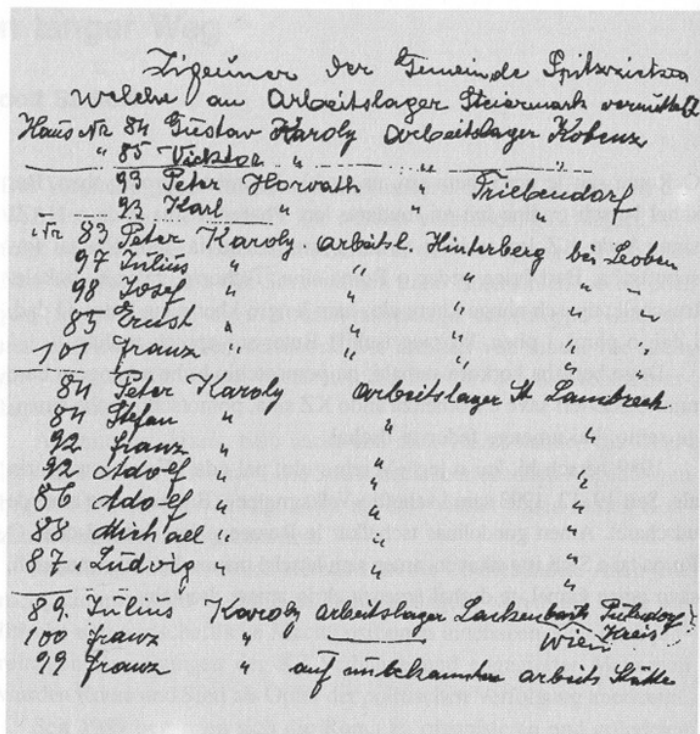 Zigeuner der Gemeinde Spitzzicken
welche am Arbeitslager Steiermark vermittelt
Haus Nr 84 Gustav Karoly Arbeitslager Kobenz
" 85 Vicktor " " "
93 Peter Horvath " Triebendorf
93 Karl " " "
Nr. 83 Peter Karoly Arbeitsl. Hinterberg bei Leoben
97 Julius " " " " "
98 Josef " " " " "
85 Ernst " " " " "
101 Franz " " " " "
84 Peter Karoly Arbeitslager St. Lambrech
84 Stefan " " "
92 Franz " " "
92 Adolf " " "
86 Adolf " " "
88 Michael " " "
87 Ludvig " " "
89 Julius Karoly Arbeitslager Lackenbach Pulendorf
100 Franz " Wien Kreis
99 Franz " auf unbekannten Arbeits Stätte